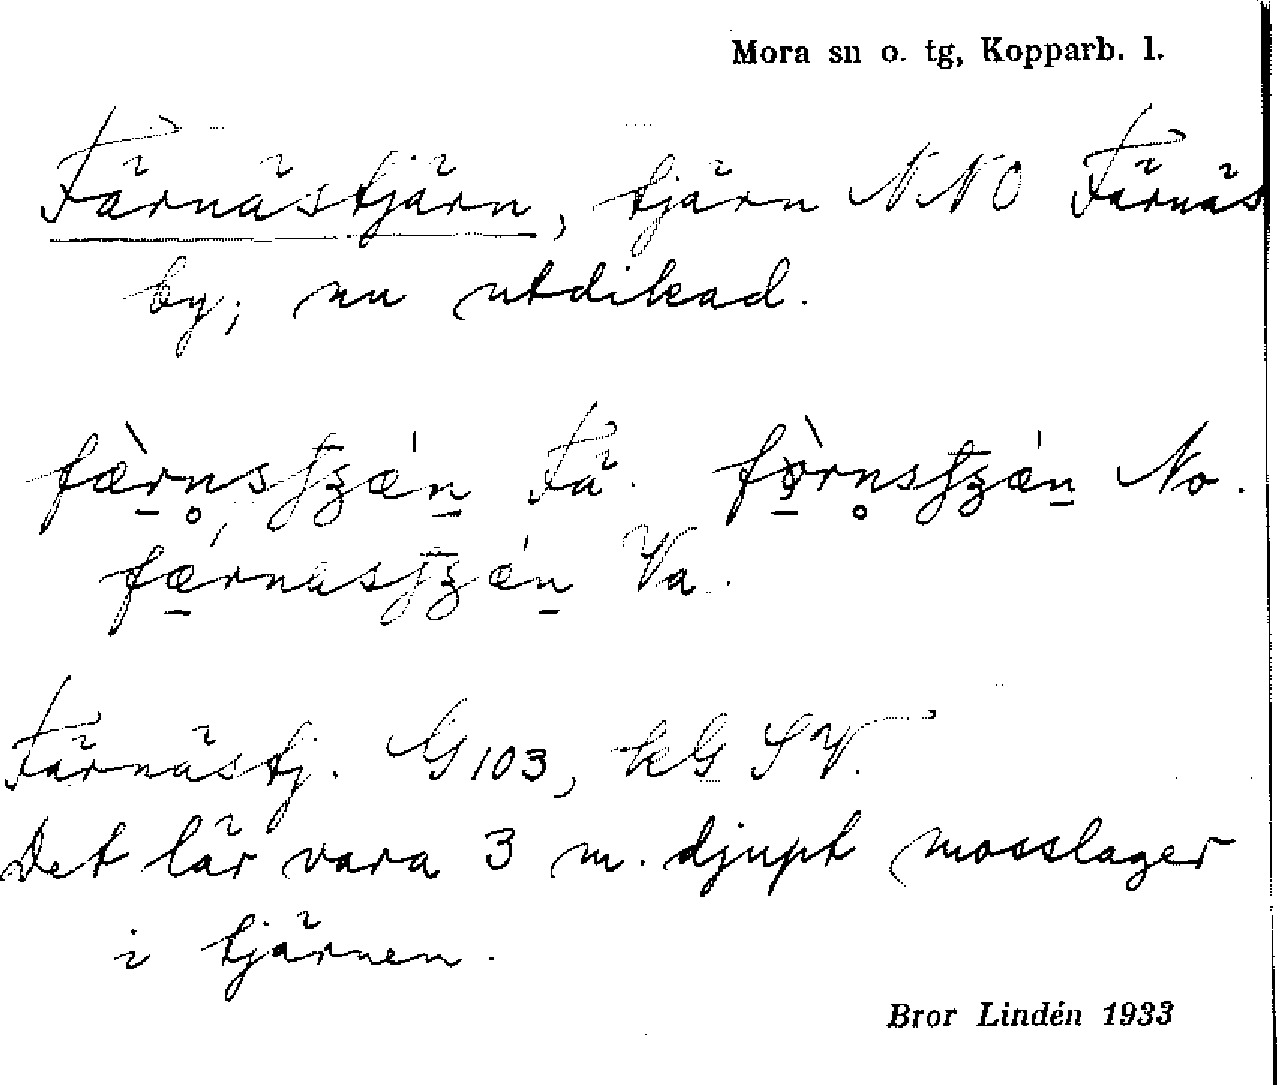 Mora sn o. tg, Kopparb. l.
Färnästjärn, tjärn NNO Färnäs
by; nu utdikad.
Fä. No.
Va.
Färnästj. G 103, kG SV.
Det lär vara 3 m. djupt mosslager
i tjärnen.
Bror Lindén 1933